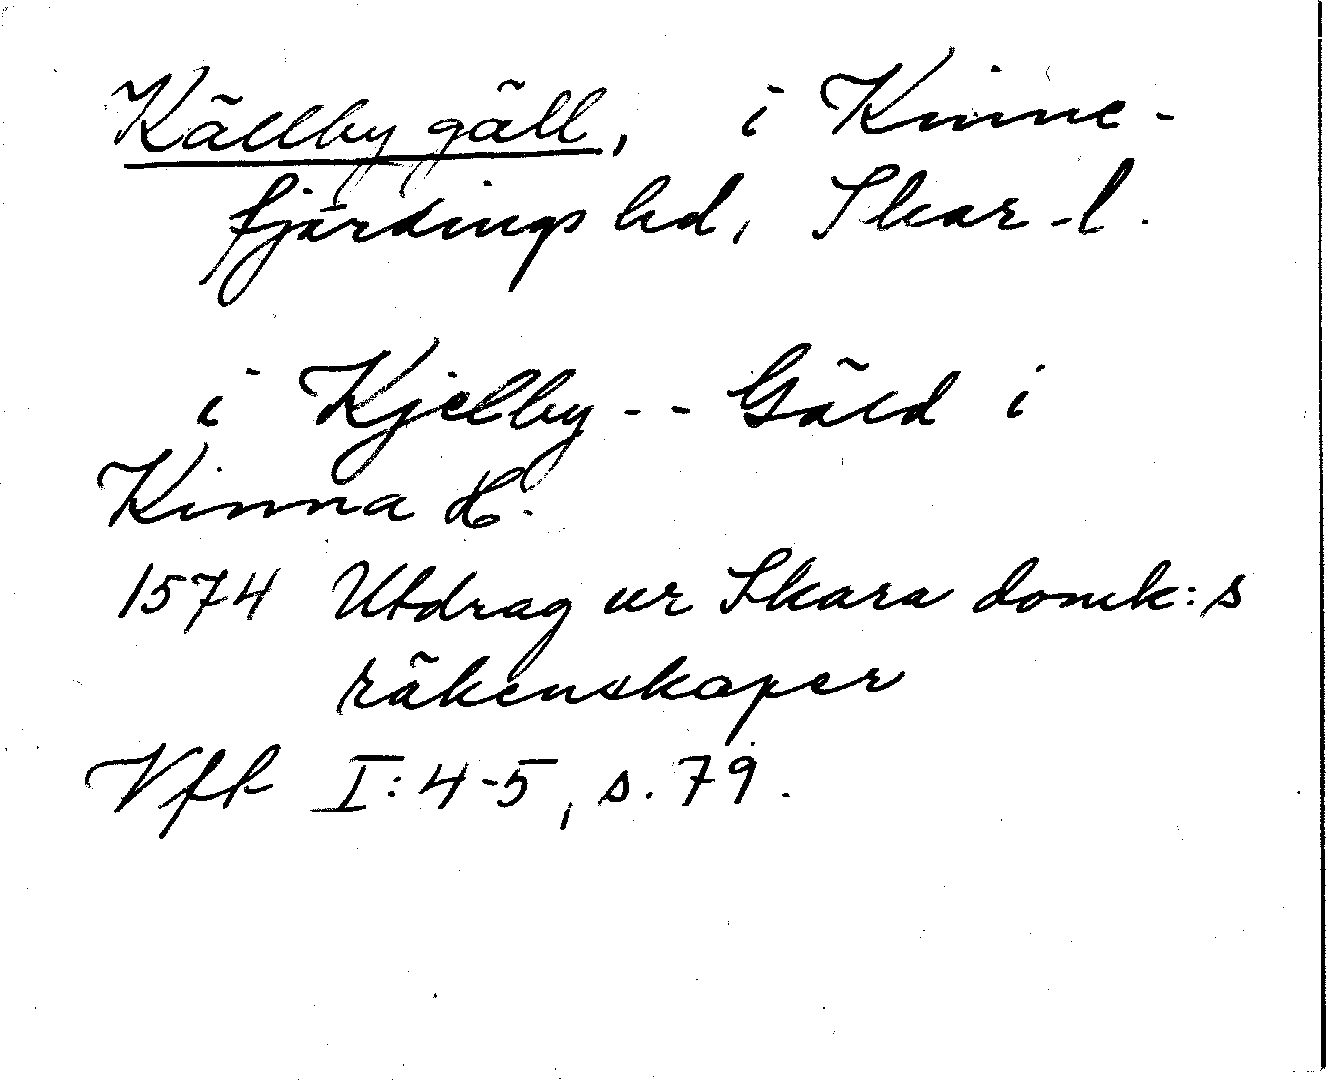 Källby gäll, i Kinne-
fjärdings hd, Skar. l.
i Kjelby -- Gäld i
Kinna H.
1574 Utdrag ur Skara domk:s
räkenskaper
Vft I:4-5, s. 79.